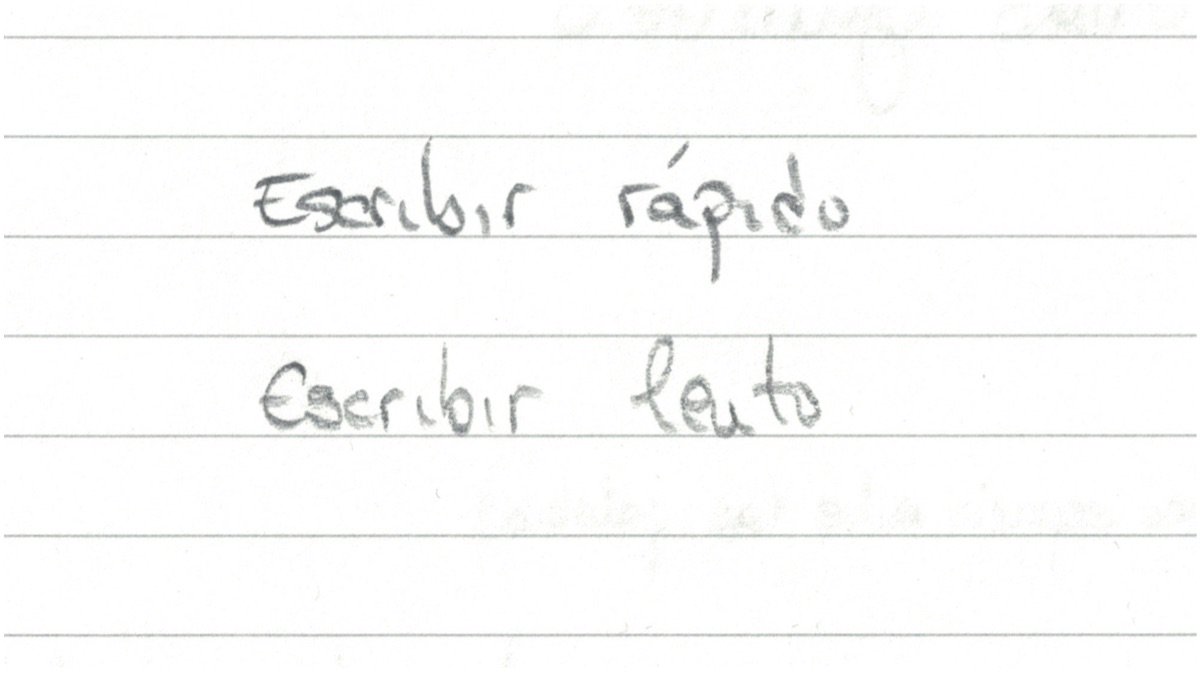 Escribir rápido
Escribir lento